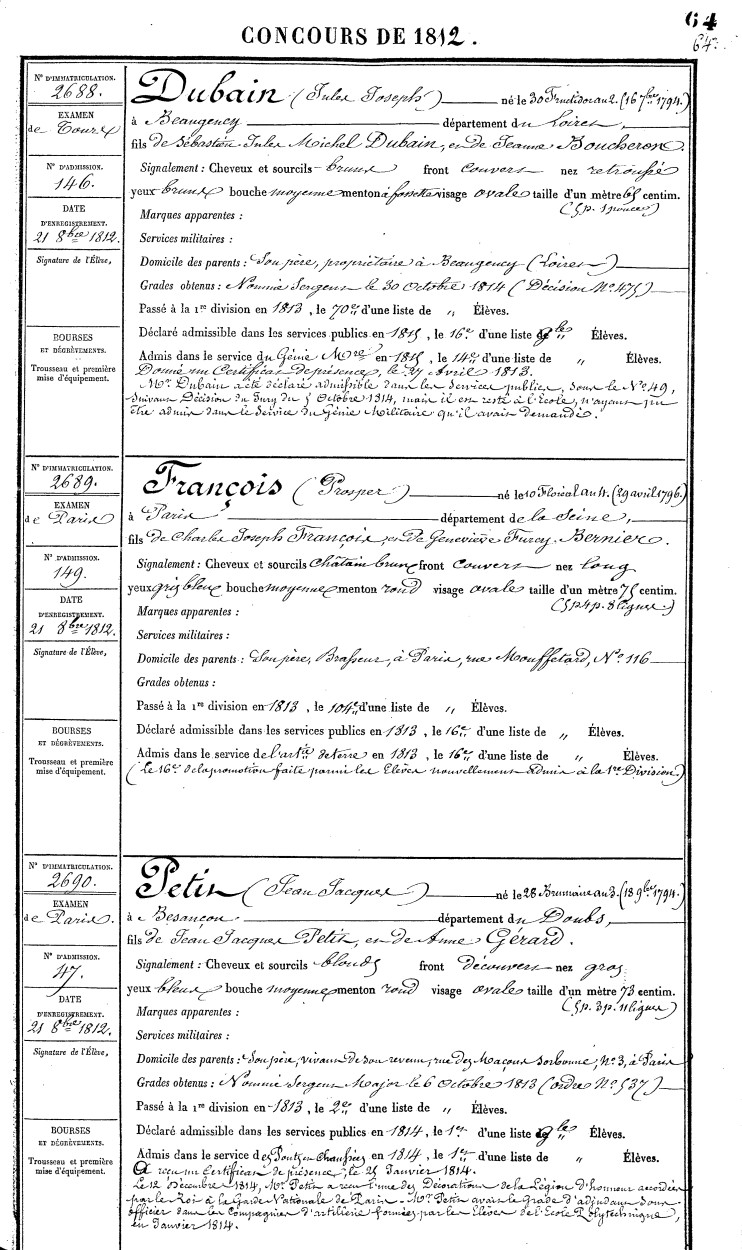 64
64.
CONCOURS DE 1812.
N° D'IMMATRICULATION.
2688.
EXAMEN
de Tours
N° D'ADMISSION.
146.
DATE
D'ENREGISTREMENT.
21 8bre 1812.
Signature de l'Élève,
BOURSES
ET DÉGRÈVEMENTS.
Trousseau et première
mise d'équipement.
Dubain (Jules Joseph) né le 30 Fructidor an 2. (16 7bre 1794.)
à Beaugency département du Loiret,
fils de Sébastien Jules Michel Dubain, et de Jeanne Boucheron.
Signalement: Cheveux et sourcils bruns front couvert nez retroussé
yeux bruns bouche moyenne menton à fossette visage ovale taille d'un mètre 65 centim.
(5p. 1 pouce)
Marques apparentes :
Services militaires :
Domicile des parents : Son père, propriétaire à Beaugency (Loiret)
Grades obtenus: Nommé Sergent le 30 Octobre 1814 (Décision N° 475)
Passé à la 1re division en 1813, le 70e d'une liste de " Élèves.
Déclaré admissible dans les services publics en 1815, le 16e d'une liste gle " Élèves.
Admis dans le service du Génie Mre en 1815, le 14e d'une liste de " Élèves.
Donné un Certificat de présence, le 27 Avril 1813.
Mr. Dubain a été déclaré admissible dans les Services publics, sous le N° 49,
suivant Décision du Jury du 5 Octobre 1814, mais il est resté à l'Ecole, n'ayant pu
être admis dans le Service du Génie Militaire qu'il avait demandé.
N° D'IMMATRICULATION.
2689.
EXAMEN
de Paris
N° D'ADMISSION.
149.
DATE
D'ENREGISTREMENT.
21 8bre 1812.
Signature de l'Élève,
BOURSES
ET DÉGRÈVEMENTS.
Trousseau et première
mise d'équipement.
François (Prosper) né le 10 Floréal an 4. (29 avril 1796.)
à Paris département de la Seine,
fils de Charles Joseph François, et de Geneviève Furcy Bernier.
Signalement: Cheveux et sourcils châtain brun front couvert nez long
yeux gris bleu bouche moyenne menton rond visage ovale taille d'un mètre 75 centim.
(5p 4p. 8 lignes.)
Marques apparentes :
Services militaires :
Domicile des parents : Son père, Brasseur, à Paris, rue Mouffetard, N° 116
Grades obtenus :
Passé à la 1re division en 1813, le 104e d'une liste de " Élèves.
Déclaré admissible dans les services publics en 1813, le 16e d'une liste de " Élèves.
Admis dans le service de l'artie de terre en 1813, le 16e d'une liste de " Élèves.
(Le 16e de la promotion faite parmi les Elèves nouvellement admis à la 1re Division)
N° D'IMMATRICULATION.
2690.
EXAMEN
de Paris.
N° D'ADMISSION.
47.
DATE
D'ENREGISTREMENT.
21 8bre 1812.
Signature de l'Élève,
BOURSES
ET DÉGRÈVEMENTS.
Trousseau et première
mise d'équipement.
Petit (Jean Jacques) né le 28 Brumaire an 3. (18 9bre 1794.)
à Besançon département du Doubs,
fils de Jean Jacques Petit, et de Anne Gérard.
Signalement: Cheveux et sourcils blonds front découvert nez gros
yeux bleus bouche moyenne menton rond visage ovale taille d'un mètre 73 centim.
(5p. 3p. 11 lignes)
Marques apparentes :
Services militaires :
Domicile des parents : Son père, vivant de son revenu, rue des Maçons Sorbonne, N° 3, à Paris
Grades obtenus : Nommé Sergent Major le 6 Octobre 1813 (ordre N° 537)
Passé à la 1re division en 1813, le 2e d'une liste de " Élèves.
Déclaré admissible dans les services publics en 1814, le 1er d'une liste gle " Élèves.
Admis dans le service des Ponts et Chaussées en 1814, le 1er d'une liste de " Élèves.
A reçu un Certificat de présence, le 25 Janvier 1814.
Le 12 Décembre 1814, Mr. Petit a reçu l'une des Décorations de la Légion d'honneur accordées
par le Roi à la Garde Nationale de Paris. Mr. Petit avait le Grade d'adjudant Sous
officier dans les Compagnies d'artillerie formées par les Elèves de l'Ecole Polytechnique,
en Janvier 1814.